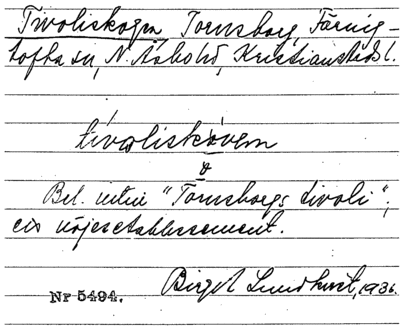 Tivoliskogen, Tornsborg, Färing-
tofta sn, N. Åsbohd, Kristianstads l.
tivoliskóven
Bel. intill "Tornsborgs tivoli",
ett nöjesetablissement.
Birgit Lundkvist, 1936.
Nr 5494.